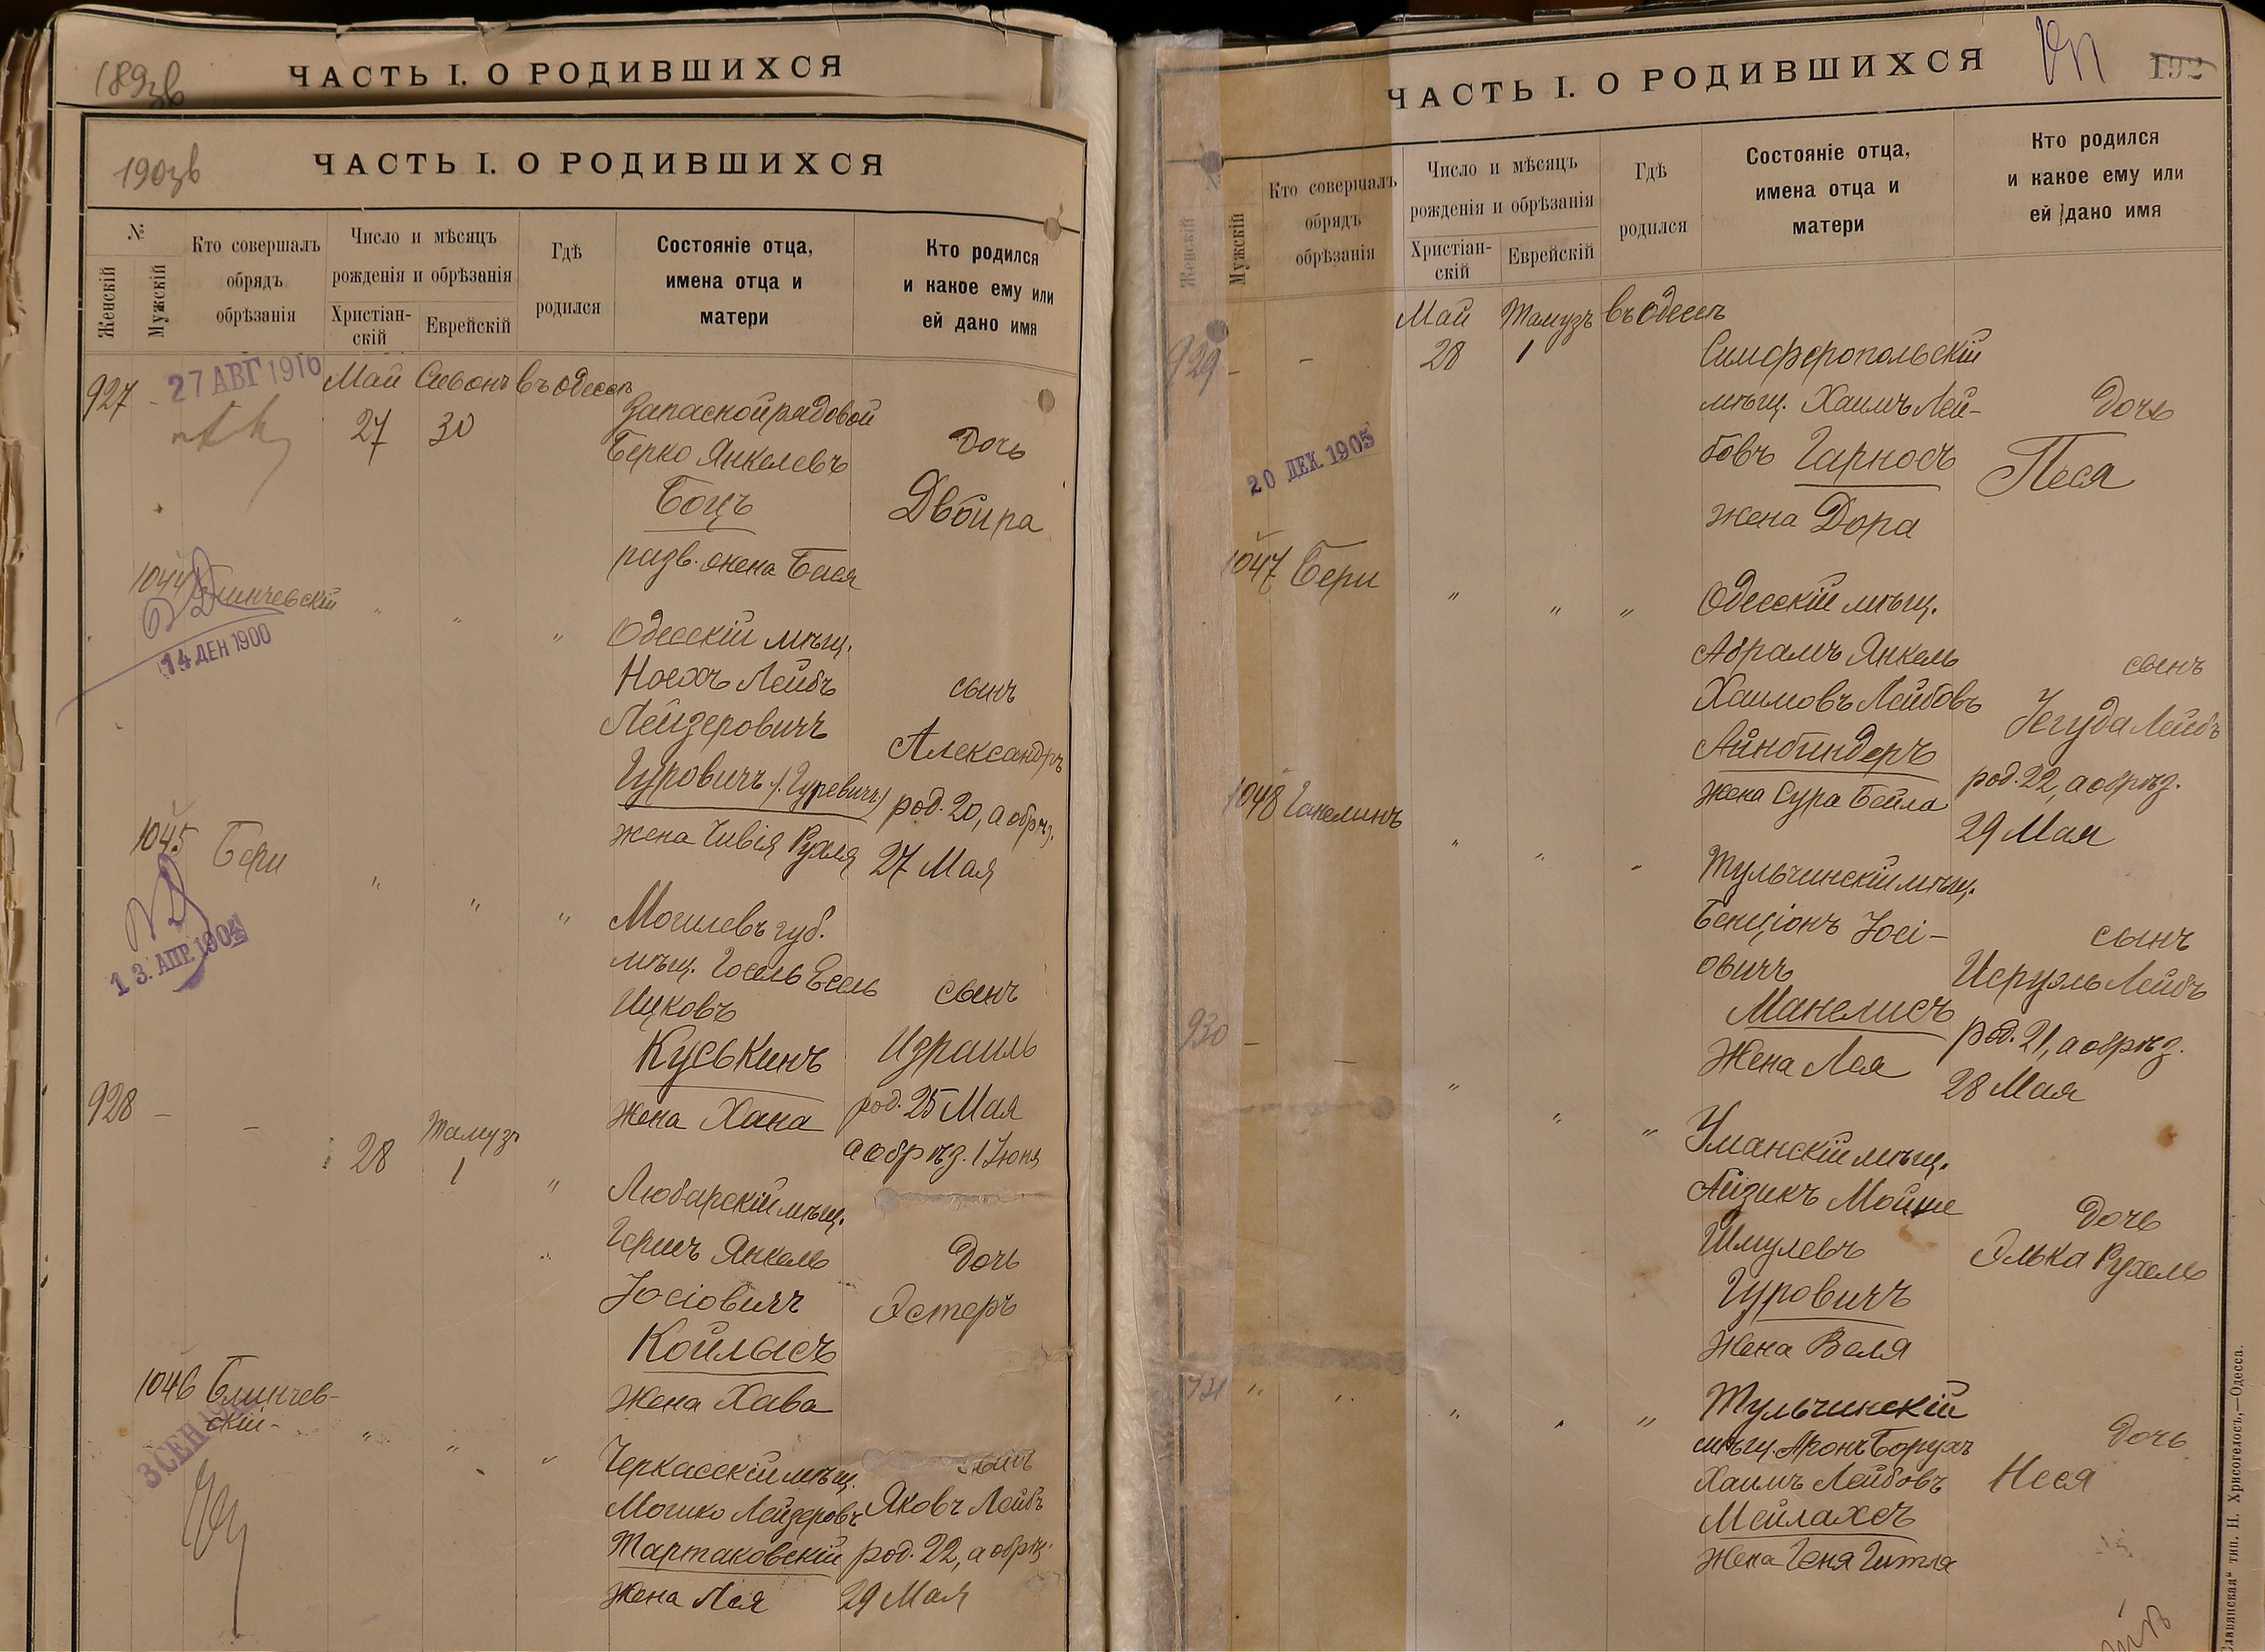 189зв
ЧАСТЬ I. О РОДИВШИХСЯ
190зв
ЧАСТЬ I. О РОДИВШИХСЯ
№
Женскій
Мужскій
Кто совершалъ
обрядъ
обрѣзанія
Число и мѣсяцъ
рожденія и обрѣзанія
Христіан-
скій
Еврейскій
Гдѣ
родился
Состояніе отца,
имена отца и
матери
Кто родился
и какое ему или
ей дано имя
927 -
27 АВГ 1916
Май Сивонъ въ Одессѣ
27 30
Запасной рядовой
Берко Янкелевъ
Боцъ
разв. жена Бася
дочь
Двойра
1044 Блинчевскій
14 ДЕК 1900
" " "
Одесскій мѣщ.
Ноехъ Лейбъ
Лейзеровичъ
Гуровичъ /Гуревичъ/
жена Цивія Рухля
сынъ
Александръ
род. 20, а обрѣз.
27 Мая
1045 Бери
13. АПР. 1904
" " "
Могилевъ губ.
мѣщ. Іосель Есель
Ицковъ
Куськинъ
жена Хана
сынъ
Израиль
род. 25 Мая
а обрѣз. 1 Іюня
928 - -
28
Тамузъ
1
"
Любарскій мѣщ.
Гершъ Янкель
Іосіовичъ
Койлысъ
жена Хава
дочь
Эстеръ
1046 Блинчев-
скій-
3 СЕН
" " "
Черкасскій мѣщ.
Мошко Лейзеровъ
Тартаковскій
жена Лея
сынъ
Яковъ Лейбъ
род. 22, а обрѣз.
29 Мая
ЧАСТЬ I. О РОДИВШИХСЯ
192
Женскій
Мужскій
Кто совершалъ
обрядъ
обрѣзанія
Число и мѣсяцъ
рожденія и обрѣзанія
Христіан-
скій
Еврейскій
Гдѣ
родился
Состояніе отца,
имена отца и
матери
Кто родился
и какое ему или
ей дано имя
Май Тамузъ въ Одессѣ
929 - -
28 1
20 ДЕК. 1905
Симферопольскій
мѣщ. Хаимъ Лей-
бовъ Гарносъ
жена Дора
дочь
Песя
1047 Бери
" " "
Одесскій мѣщ.
Абрамъ Янкель
Хаимовъ Лейбовъ
Айнбиндеръ
жена Сура Бейла
сынъ
Іегуда Лейбъ
род. 22, а обрѣз.
29 Мая
1048 Ганелинъ
" " "
Тульчинскій мѣщ.
Бенціонъ Іосі-
овичъ
Манелисъ
жена Лея
сынъ
Исруэль Лейбъ
род. 21, а обрѣз.
28 Мая
930 - -
" " "
Уманскій мѣщ.
Айзикъ Мойше
Шмулевъ
Гуровичъ
жена Веля
дочь
Элька Рухель
931 " "
" " "
Тульчинскій
мѣщ. Аронъ Борухъ
Хаимъ Лейбовъ
Мейлахсъ
жена Геня Гитля
дочь
Неся
Славянская" тип. Н. Хрисогелосъ,—Одесса.